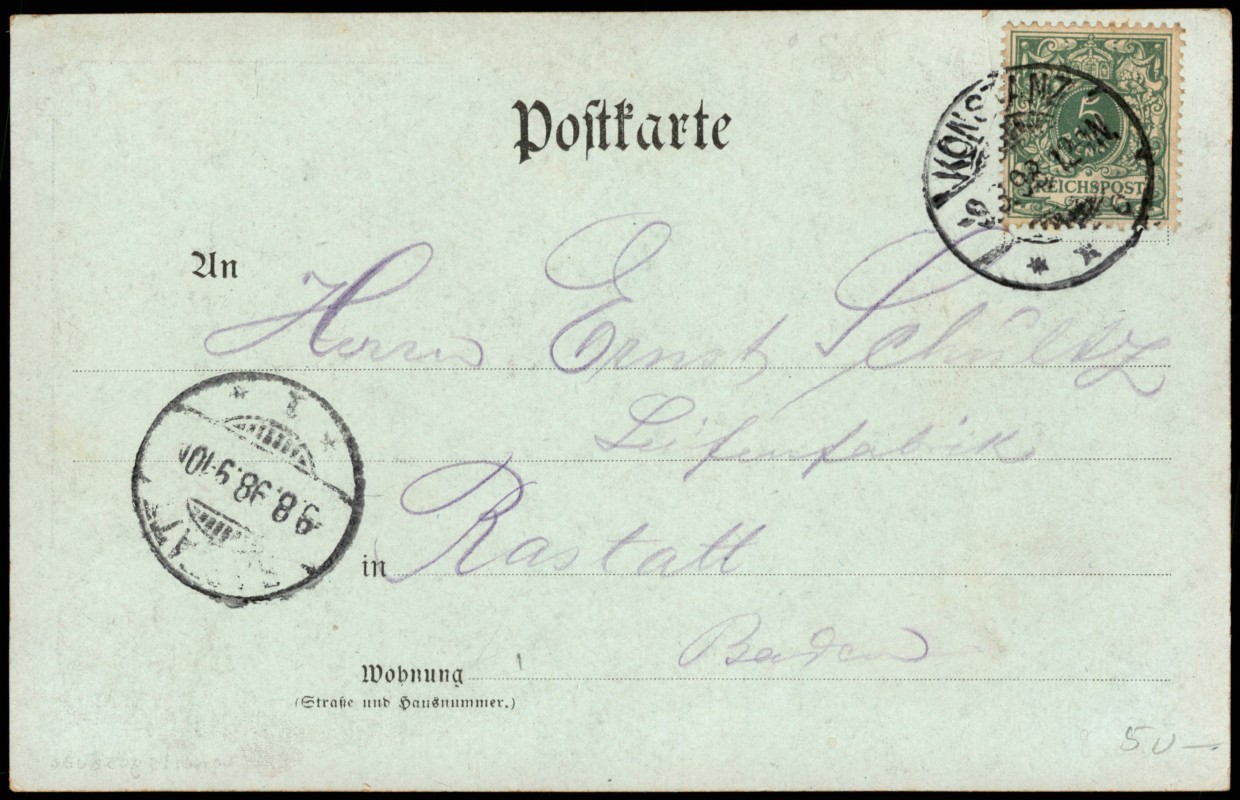 Postkarte
KONSTANZ
5
REICHSPOST
An
Herrn Ernst Schultz
Seifenfabrik
9.8.98.9-10N
in Rastatt
Baden
Wohnung
(Straße und Hausnummer.)